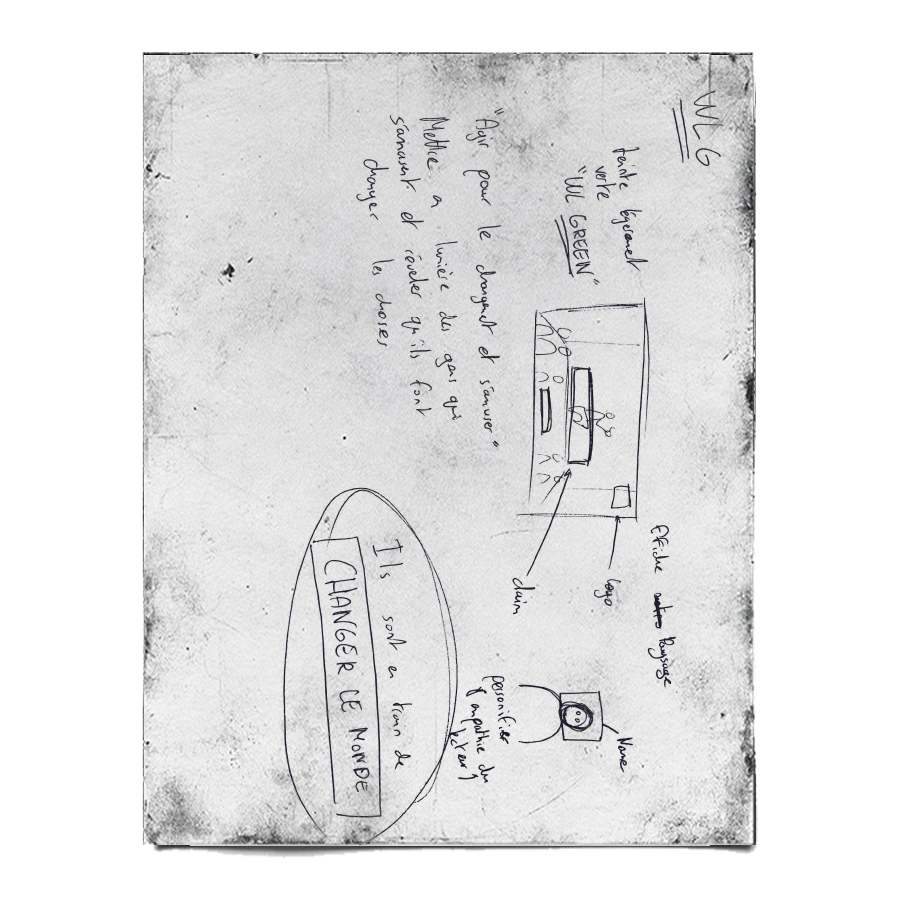 WLG
teinte légèrement
verte
"WL GREEN"
"Agir pour le changement et s'amuser"
Mettre a lumière des gens qui
s'amusent et révéler qu'ils font
changer les choses
Affiche
Paysage
logo
claim
Name
personifier
empathie du
Ils sont en train de
CHANGER LE MONDE